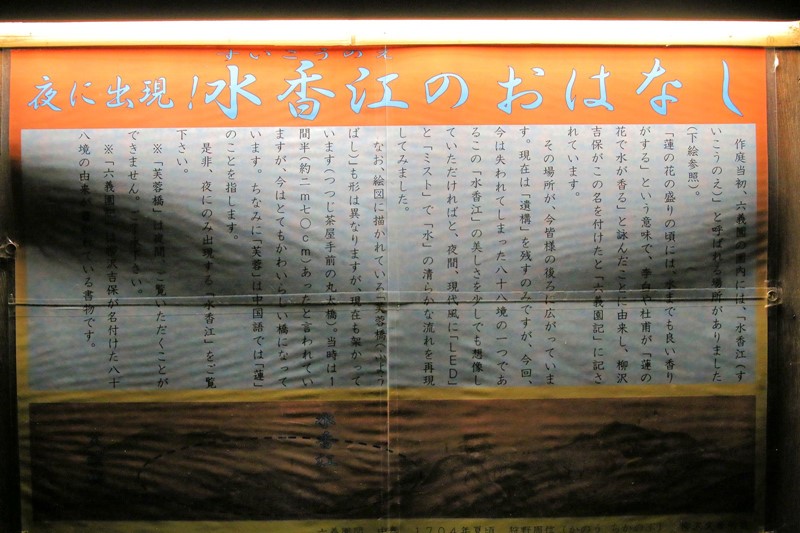 すいこうのえ
夜に出現!水香江のおはなし
作庭当初、六義園の園内には、「水香江(す
いこうのえ)」と呼ばれる場所がありました
(下絵参照)。
「蓮の花の盛りの頃には、堂までも良い香り
がする」という意味で、李白や杜甫が「蓮の
花で水が香る」と詠んだことに由来し、柳沢
吉保がこの名を付けたと「六義園記」に記さ
れています。
その場所が、今皆様の後ろに広がっていま
す。現在は「遺構」を残すのみですが、今回、
今は失われてしまった八十八境の一つであ
るこの「水香江」の美しさを少しでも想像し
ていただければと、夜間、現代風に「LED」
と「ミスト」で「水」の清らかな流れを再現
してみました。
なお、絵図に描かれている「芙蓉橋(ふよう
ばし)」も形は異なりますが、現在も架かって
います(つつじ茶屋手前の丸太橋)。当時は1
間半(約二m七〇cm)あったと言われてい
ますが、今はとてもかわいらしい橋になって
います。ちなみに「芙蓉」は中国語では「蓮」
のことを指します。
是非、夜にのみ出現する「水香江」をご覧
下さい。
※「芙蓉橋」は夜間、ご覧いただくことが
できません。ご了承下さい。
※「六義園記」 吉保が名付けた八十
八境の由来が いる書物です。
水香江
六義園図 1704年夏頃 狩野